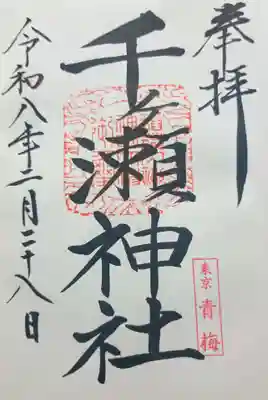 奉拝
千ヶ瀬神社
東京
青梅
令和八年二月二十八日